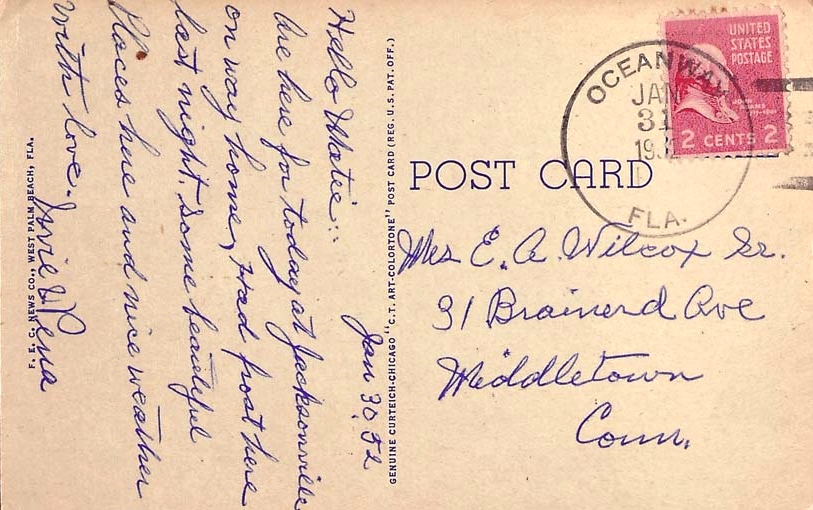 Jan 30, 52
Hello Matie:-
Are here for today at Jacksonville
on way home, Had frost here
last night. Some beautiful
Places here and nice weather
With love.
& Rena
F. E. C. NEWS CO., WEST PALM BEACH, FLA.
GENUINE CURTEICH-CHICAGO "C.T. ART-COLORTONE" POST CARD (REG. U.S. PAT. OFF.)
POST CARD
OCEANWAY
JAN
31
FLA.
UNITED
STATES
POSTAGE
JOHN
ADAMS
2 CENTS 2
Mrs E. A. Wilcox Sr.
31 Brainerd Ave
Middletown
Conn.